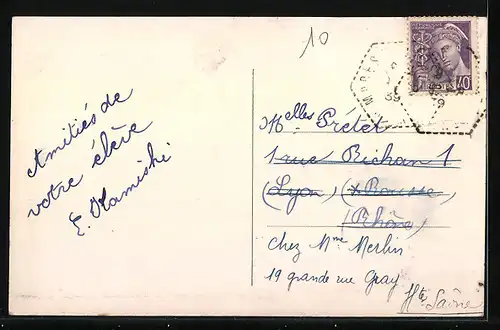 10
40
39
Amitiés de
votre élève
E. Kamishi
Melles Prétet
1 rue Bichan 1
(Lyon) (x Rousse)
(Rhône)
chez Mme Merlin
19 grande rue Gray
Hte Saône